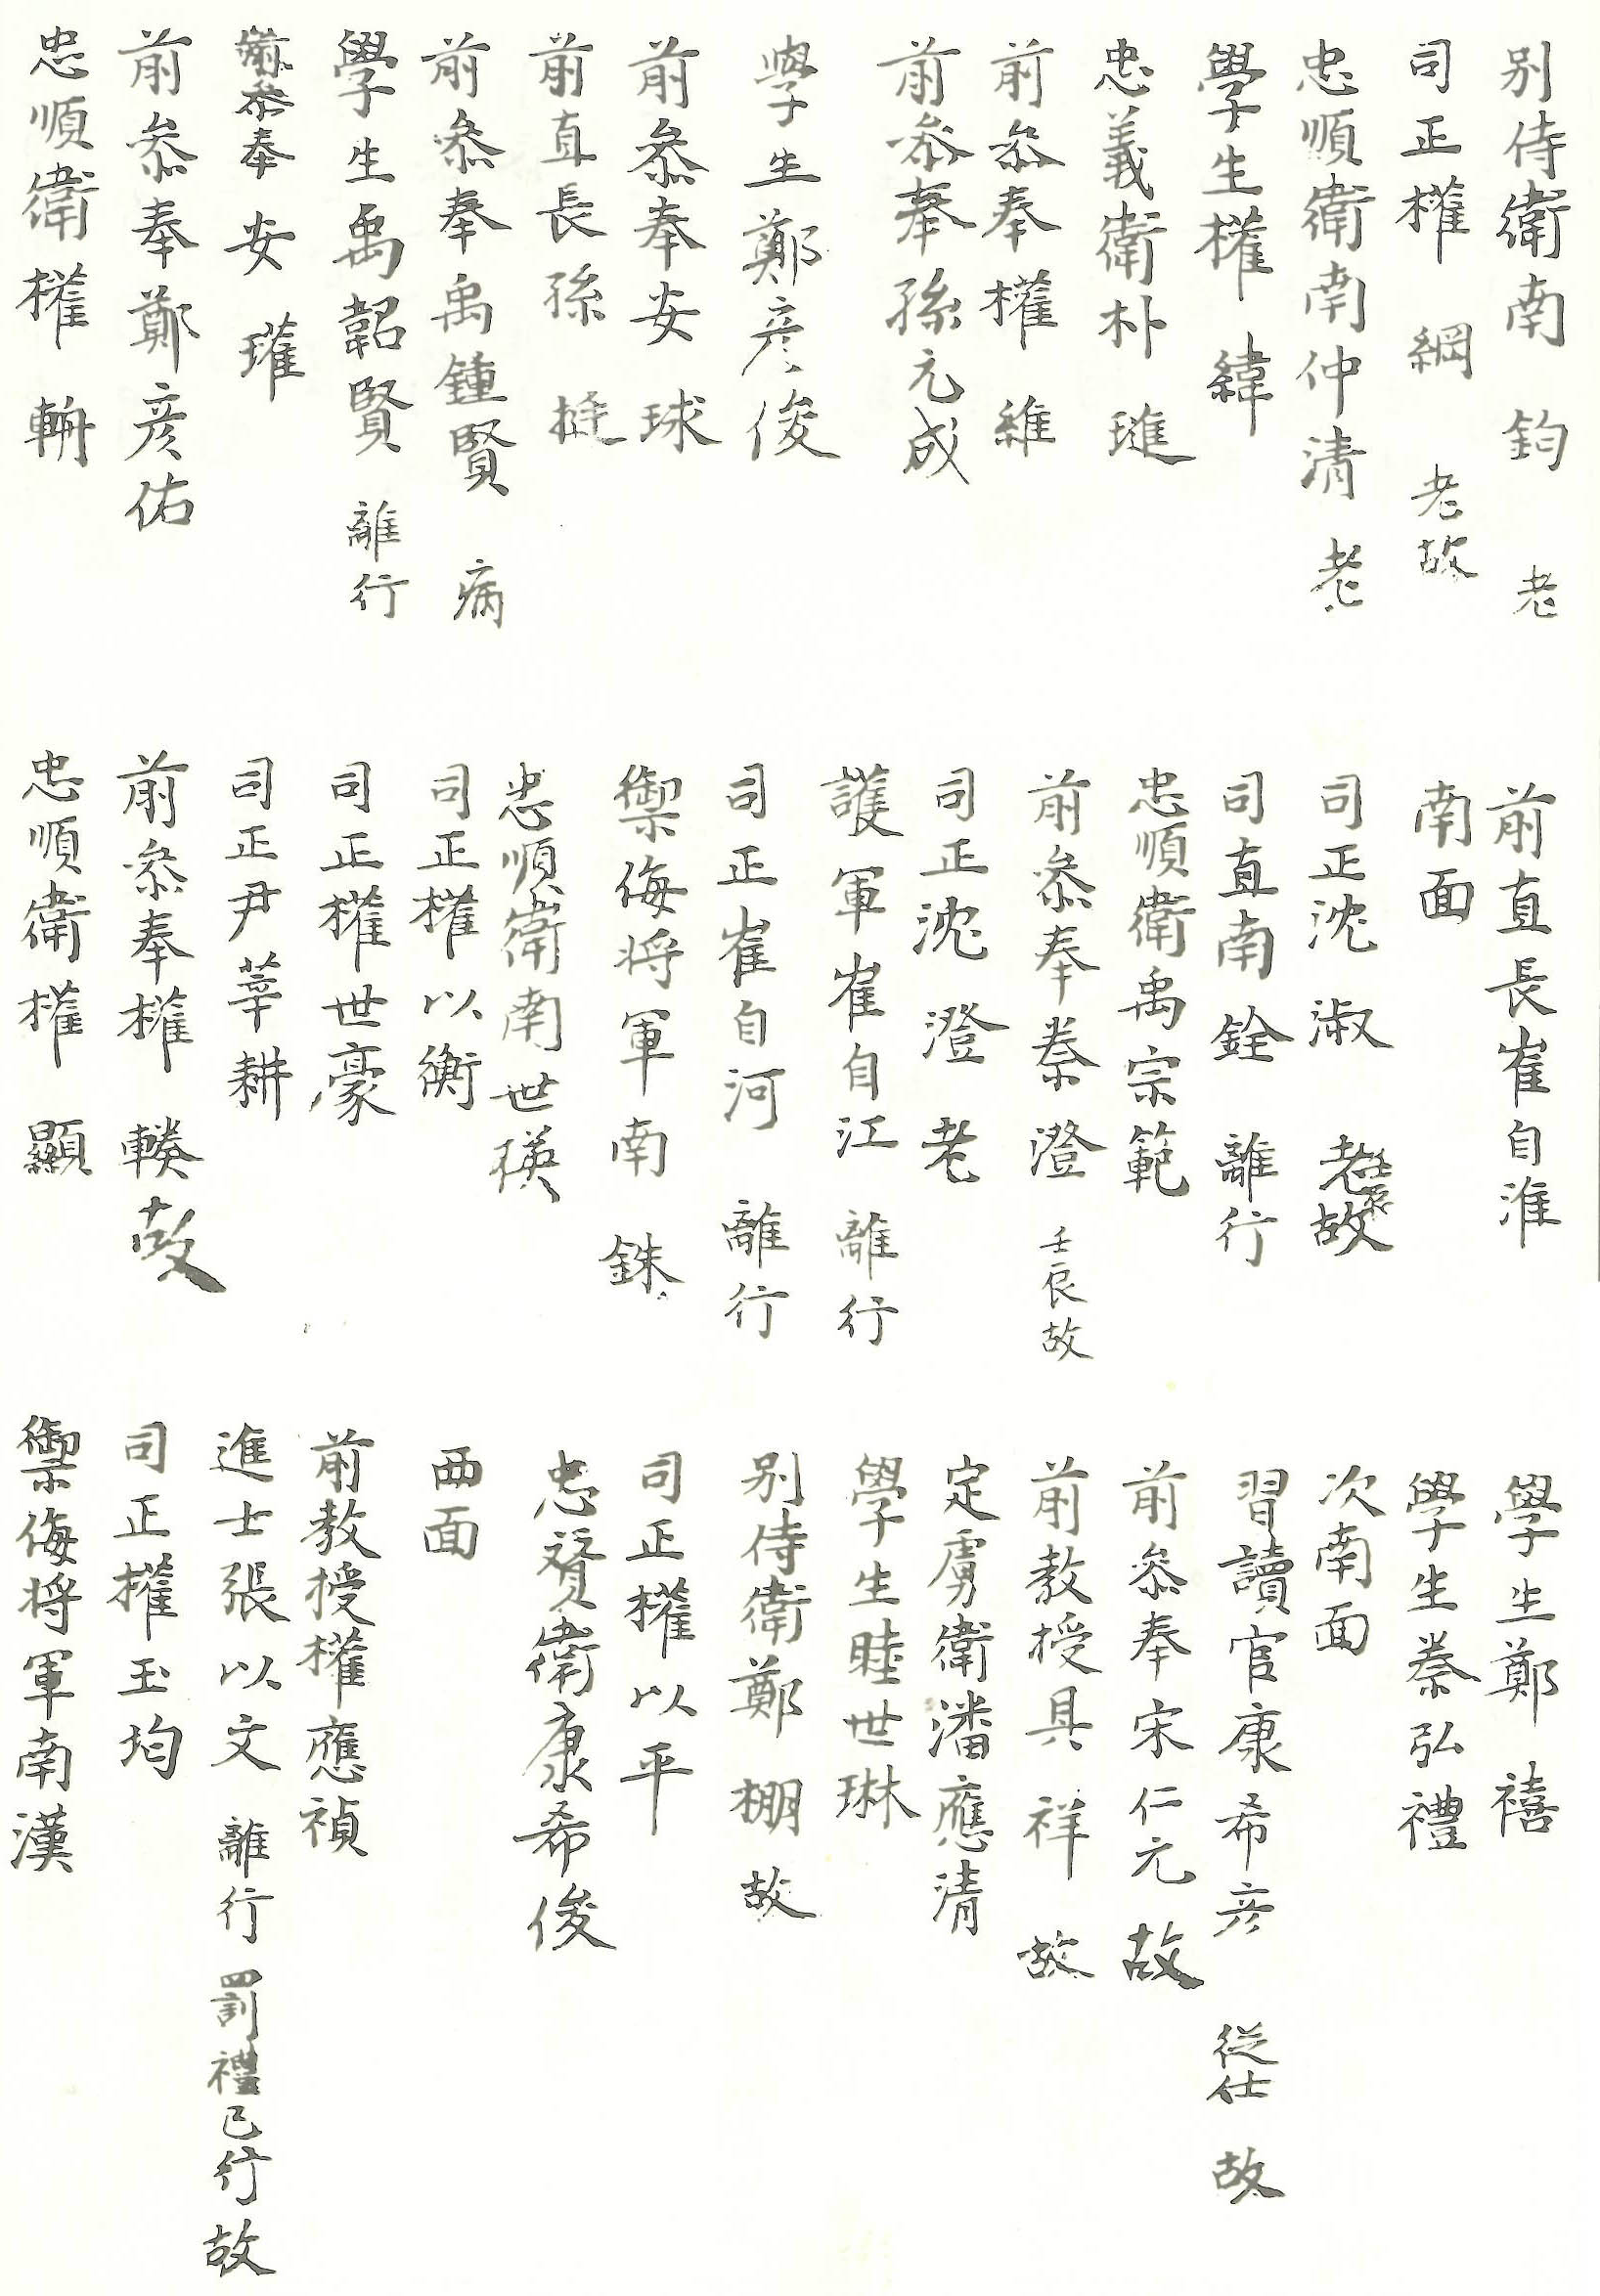 别侍衛南 鈞 老
司正權 綱 老故
忠順衛南仲清 老
學生權 緯
忠義衛朴 璡
前叅奉權 維
前叅奉孫元成
學生鄭彦俊
前叅奉安 球
前直長孫 挺
前叅奉禹鍾賢 病
學生禹韶賢 離行
前叅奉安 瓘
前叅奉鄭彦佑
忠順衛權 輧
前直長崔自淮
南面
司正沈 淑 老故
司直南 銓 離行
忠順衛禹宗範
前叅奉秦 澄 壬辰故
司正沈 澄 老
護軍崔自江 離行
司正崔自河 離行
禦侮将軍南 銖
忠順衛南世瑛
司正權以衡
司正權世豪
司正尹莘耕
前叅奉權 轃 故
忠順衛權 顯
學生鄭 禧
學生秦弘禮
次南面
習讀官康希彦 從仕 故
前叅奉宋仁元 故
前教授具 祥 故
定虜衛潘應清
學生睦世琳
别侍衛鄭 棚 故
司正權以平
忠贊衛康希俊
西面
前教授權應禎
進士張以文 離行 罰禮已行 故
司正權玉均
禦侮将軍南漢